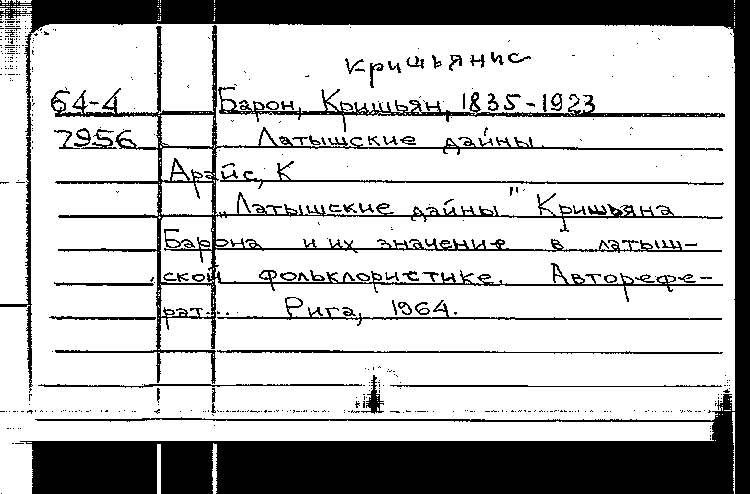 Кришьянис
64-4 Барон, Кришьян, 1835-1923
7956 Латышские дайны.
Арайс, К
"Латышские дайны" Кришьяна
Барона и их значение в латыш-
ской фольклористике. Авторефе-
рат... Рига, 1964.